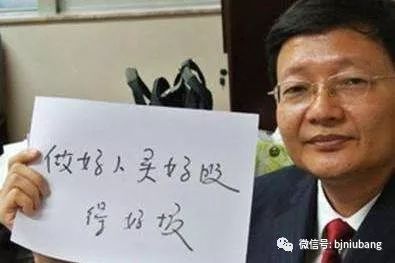 做好人买好股
得好报
微信号: bjniubang